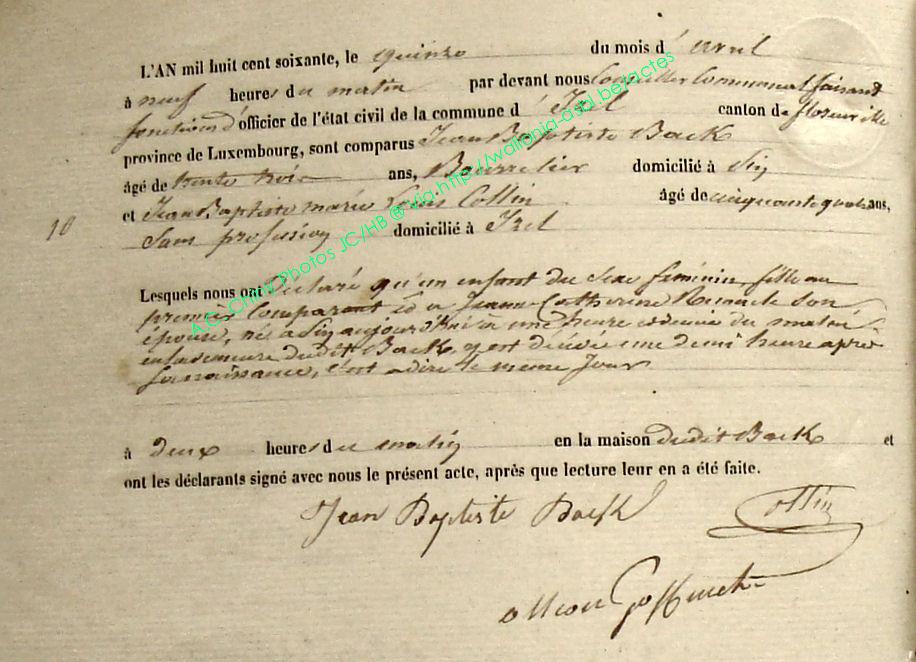 L'AN mil huit cent soixante, le quinze du mois d'avril
à neuf heures du matin par devant nous Conseiller Communal faisant
fonctions d'officier de l'état civil de la commune d'Izel canton de florenville
province de Luxembourg, sont comparus Jean Baptiste Back
âgé de trente trois ans, Bourrelier domicilié à Pin
et Jean Baptiste marie Louis Collin âgé de cinquante quatre ans,
10
Sans profession domicilié à Izel
Lesquels nous ont Déclaré qu'un enfant du sexe féminin fille au
premier Comparant et a Jeanne Catherine son
épouse, né a Pin aujourd'hui à une heure et demie du matin
en la demeure dudit Back, y est décédé une demi heure apres
sa naissance, c'est a dire le meme Jour
à deux heures du matin en la maison dudit Back et
ont les déclarants signé avec nous le présent acte, après que lecture leur en a été faite.
Jean Baptiste Back
Collin
Goffinet
A.G. Chiny Photos JC/HB @ via http://wallonia-asbl.be/actes